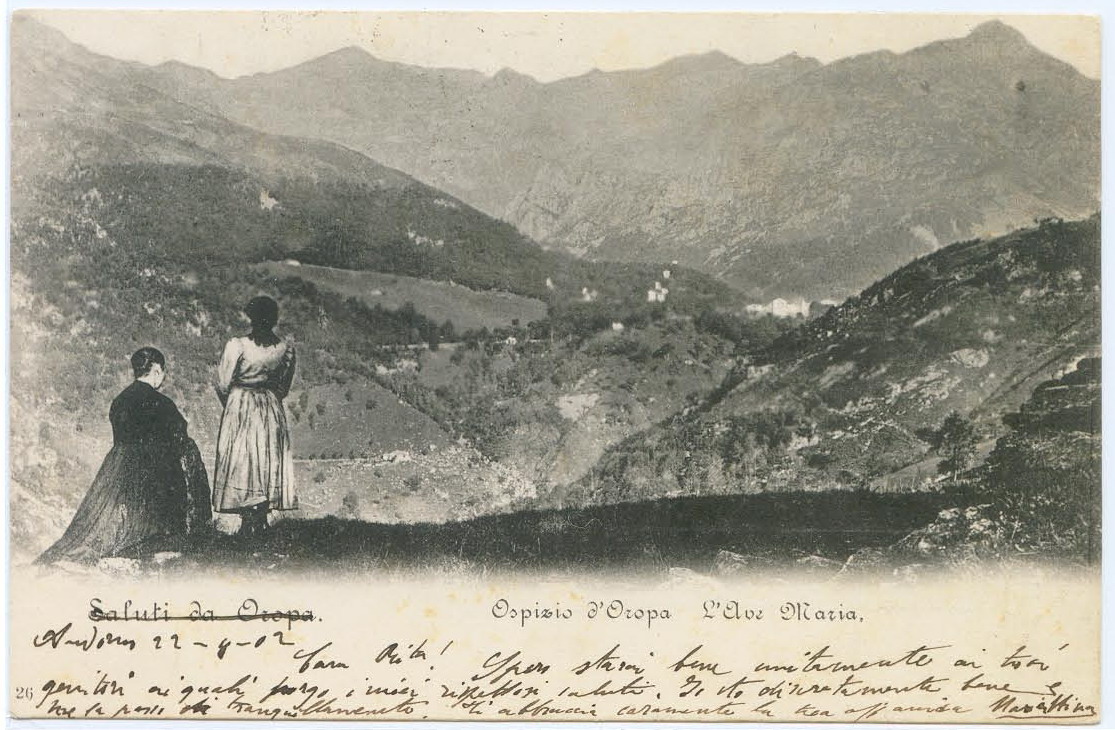 Saluti da Oropa.
Ospizio d'Oropa L'Ave Maria,
Andorno 22-9-02
Cara Rita! Spero starai bene unitamente ai tuoi
26 genitori ai quali porgo i miei rispettosi saluti. Io sto discretamente bene e
me la passo tranquillamente. Ti abbraccio caramente la tua aff amica